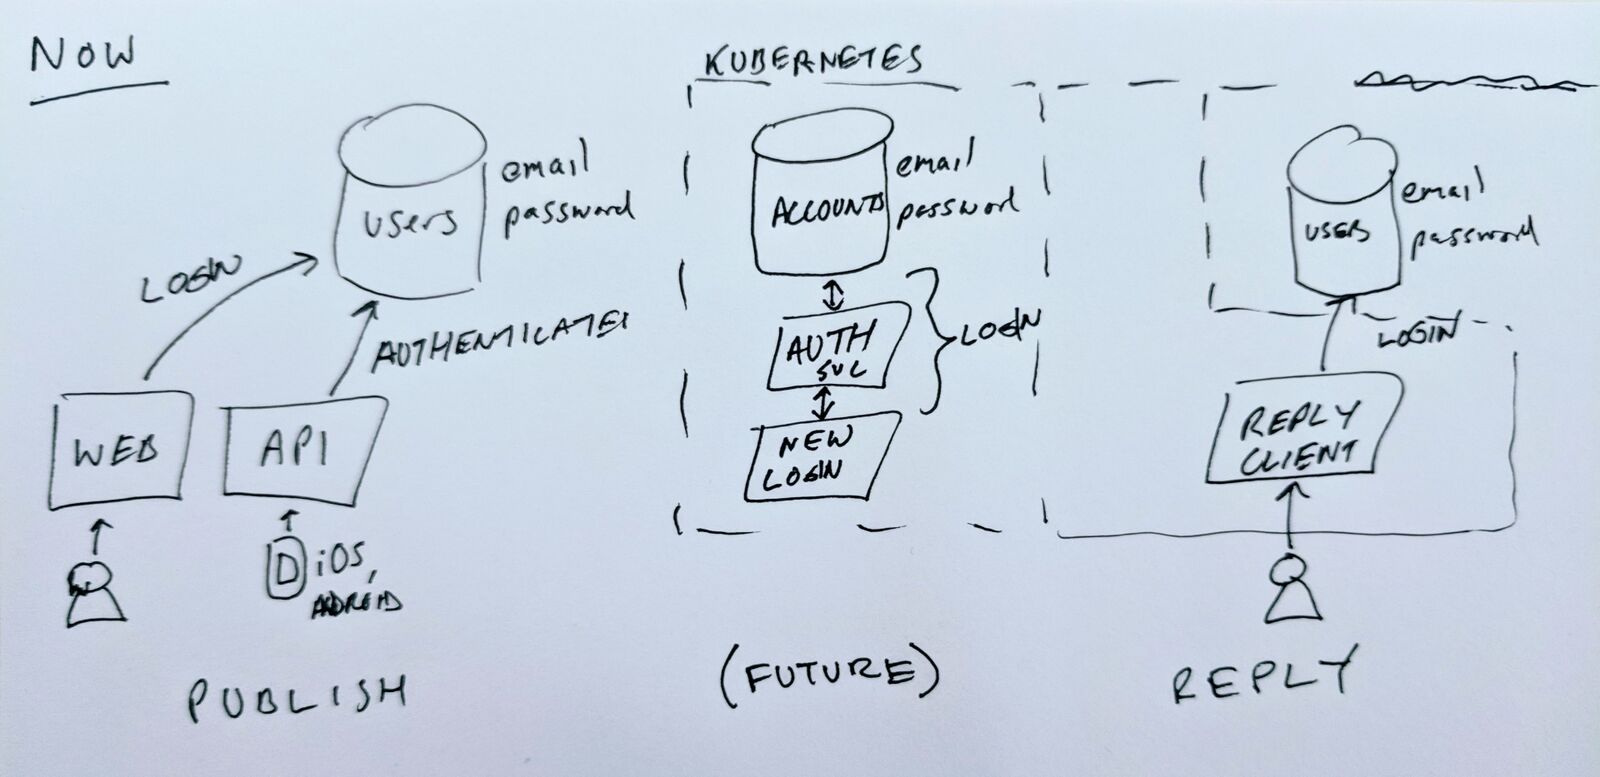 NOW
KUBERNETES
users
email
password
LOGIN
AUTHENTICATE
WEB
API
iOS,
ANDROID
PUBLISH
ACCOUNTS
email
password
AUTH
SVC
LOGIN
NEW
LOGIN
(FUTURE)
USERS
email
password
LOGIN
REPLY
CLIENT
REPLY